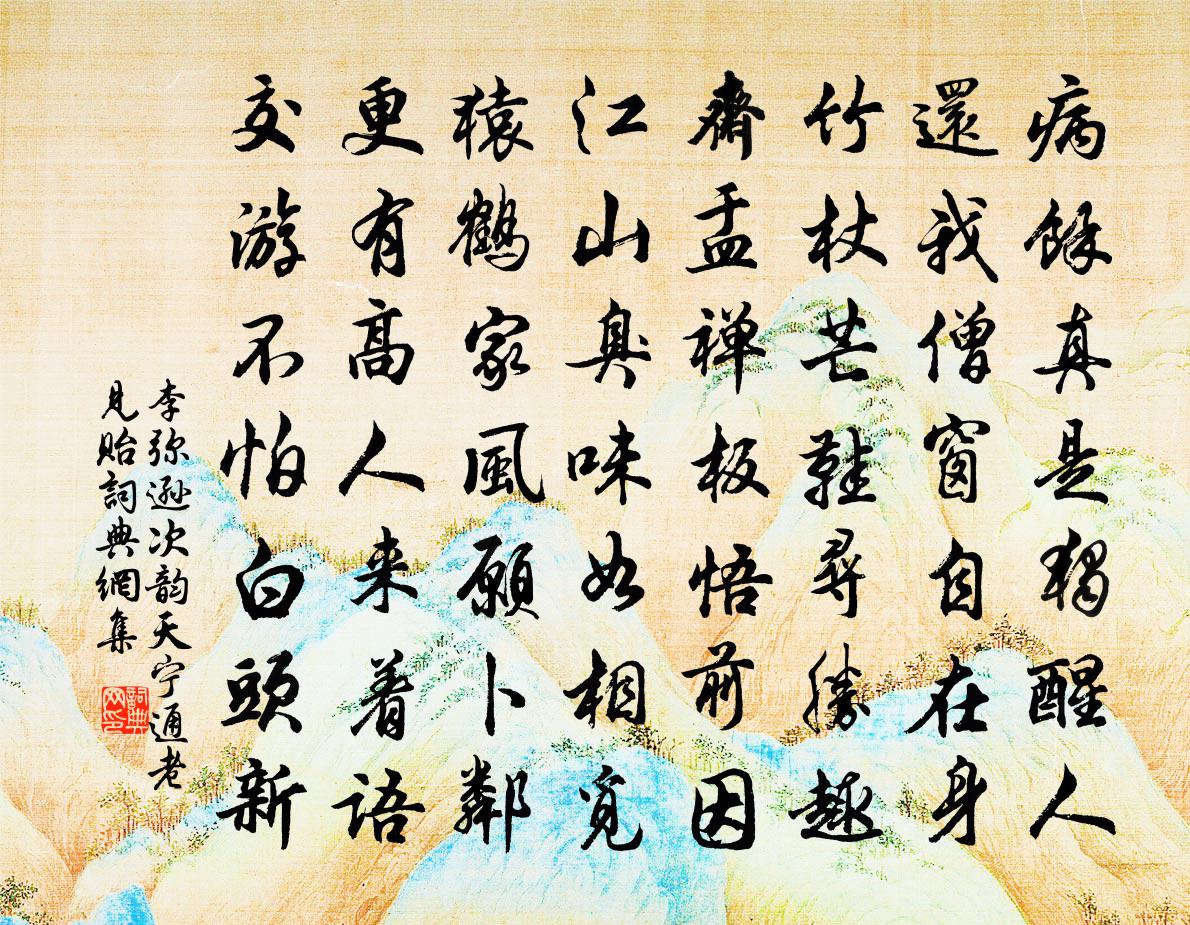 病餘真是獨醒人
還我僧窗自在身
竹杖芒鞋尋勝趣
齋盂禅板悟前因
江山臭味如相覓
猿鶴家風願卜鄰
更有高人来着語
交游不怕白頭新
李弥遜次韵天宁通老
見貽詞典網集
詞典網印